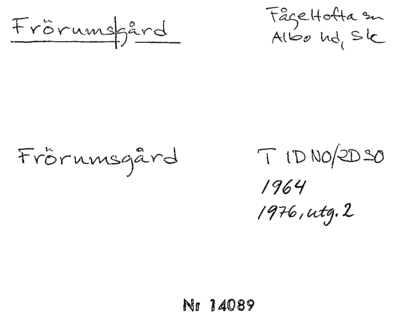 Frörumsgård
Fågeltofta sn
Albo hd, Sk
Frörumsgård
T 1D NO/2D SO
1964
1976, utg. 2
Nr 14089